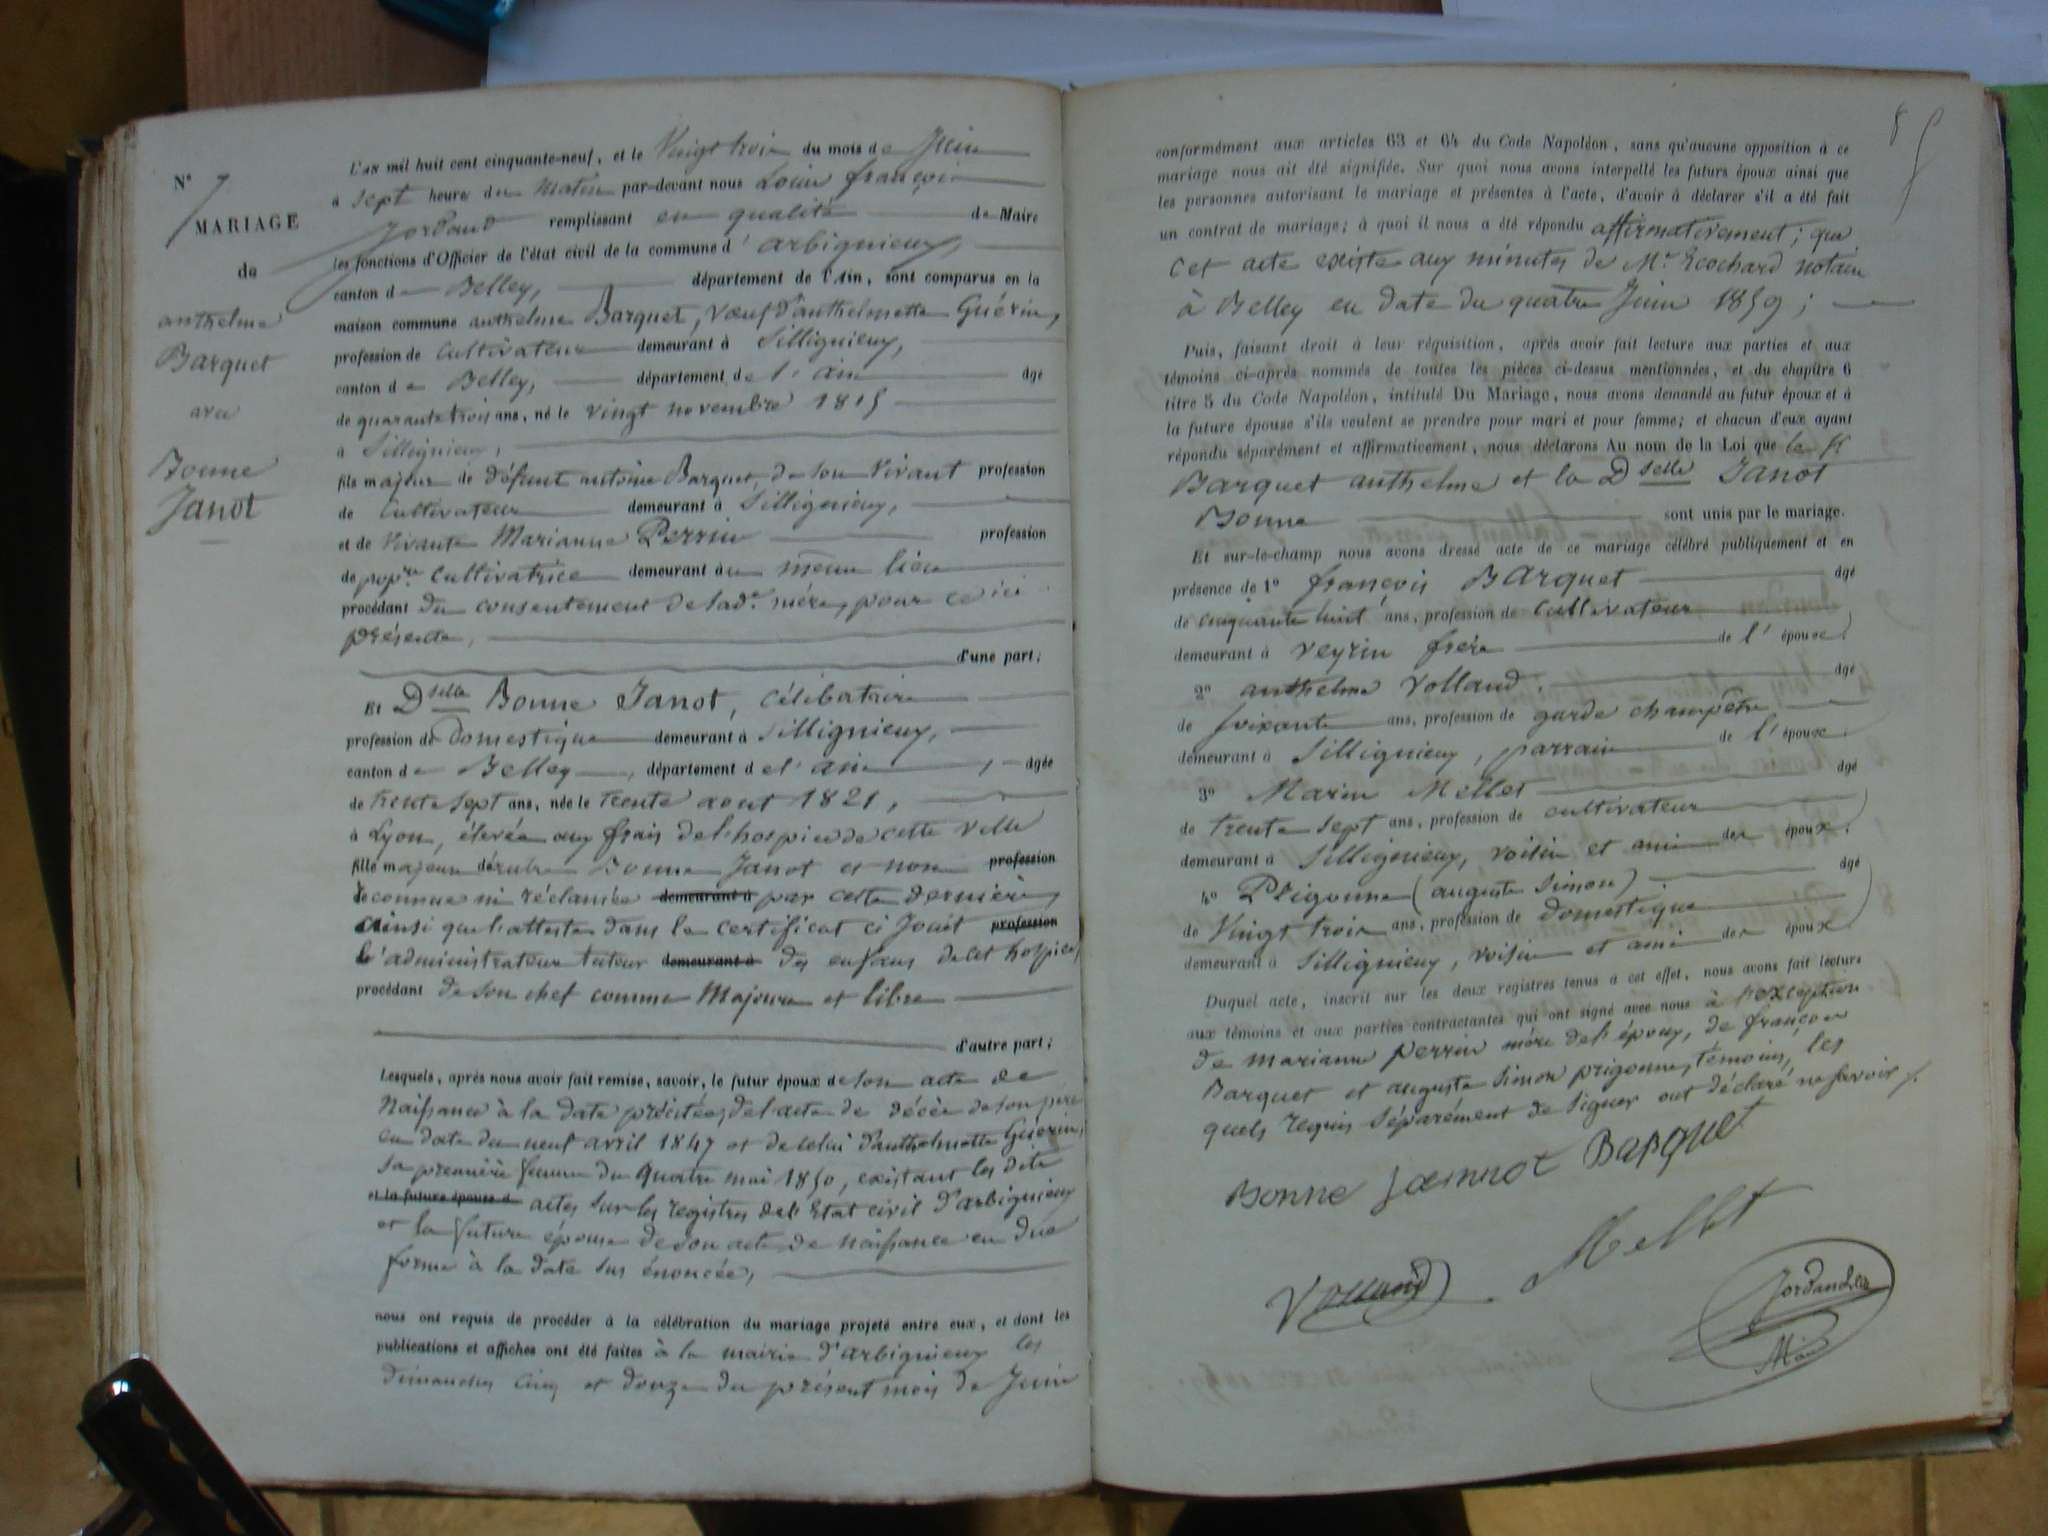 N° 7
MARIAGE
de
anthelme
Barquet
avec
Bonne
Janot
L'an mil huit cent cinquante-neuf, et le Vingt trois du mois de Juin
à sept heure du matin par-devant nous Louis françois
Jordand remplissant en qualité de Maire
les fonctions d'Officier de l'état civil de la commune d'arbignieux,
canton de Belley, département de l'Ain, sont comparus en la
maison commune anthelme Barquet, Vœuf d'anthelmette Guérin,
profession de Cultivateur demeurant à Sillignieux,
canton de Belley, département de l'ain âgé
de quarante trois ans, né le vingt novembre 1815
à Sillignieux,
fils majeur de défunt antoine Barquet, de son Vivant profession
de Cultivateur demeurant à Sillignieux,
et de Vivante Marianne Perrin profession
de pop.re Cultivatrice demeurant au même lieu
procédant du consentement de sad.e mère, pour ce ici
présente,
d'une part;
Et Dselle Bonne Janot, Célibataire
profession de Domestique demeurant à Sillignieux,
canton de Belley, département de l'ain, âgée
de trente sept ans, née le trente aout 1821,
à Lyon, élevée aux frais de l'hospice de cette Ville
fille majeure de Bonne Janot et non profession
reconnue ni réclamée demeurant à par cette dernière,
ainsi que l'atteste dans le certificat ci Joint profession
l'administrateur tuteur demeurant à des enfans de cet hospice,
procédant de son chef comme Majeure et libre
d'autre part;
Lesquels, après nous avoir fait remise, savoir, le futur époux de son acte de
Naissance à la date précitée, de l'acte de décès de son père
en date du neuf avril 1847 et de celui d'anthelmette Guérin,
sa première femme du quatre mai 1850, existant les dits
et la future épouse d actes sur les registres de l'Etat civil d'arbignieux
et la future épouse de son acte de naissance en due
forme à la date sus énoncée,
nous ont requis de procéder à la célébration du mariage projeté entre eux, et dont les
publications et affiches ont été faites à la mairie d'arbignieux les
dimanches cinq et douze du présent mois de Juin
8
conformément aux articles 63 et 64 du Code Napoléon, sans qu'aucune opposition à ce
mariage nous ait été signifiée. Sur quoi nous avons interpellé les futurs époux ainsi que
les personnes autorisant le mariage et présentes à l'acte, d'avoir à déclarer s'il a été fait
un contrat de mariage; à quoi il nous a été répondu affirmativement; que
Cet acte existe aux minutes de Mr Ecochard notaire
à Belley en date du quatre Juin 1859;
Puis, faisant droit à leur réquisition, après avoir fait lecture aux parties et aux
témoins ci-après nommés de toutes les pièces ci-dessus mentionnées, et du chapitre 6
titre 5 du Code Napoléon, intitulé Du Mariage, nous avons demandé au futur époux et à
la future épouse s'ils veulent se prendre pour mari et pour femme; et chacun d'eux ayant
répondu séparément et affirmativement, nous déclarons Au nom de la Loi que le Sr
Barquet anthelme et la Dselle Janot
Bonne sont unis par le mariage.
Et sur-le-champ nous avons dressé acte de ce mariage célébré publiquement et en
présence de 1° françois Barquet âgé
de cinquante huit ans, profession de Cultivateur
demeurant à Veyrin frère de l'époux.
2° anthelme Volland. âgé
de soixante ans, profession de garde champêtre
demeurant à Sillignieux, parrain de l'époux.
3° Marin Mellet âgé
de trente sept ans, profession de cultivateur
demeurant à Sillignieux, voisin et ami des époux.
4° Prigonne (auguste Simon) âgé
de Vingt trois ans, profession de domestique
demeurant à Sillignieux, voisin et ami des époux.
Duquel acte, inscrit sur les deux registres tenus à cet effet, nous avons fait lecture
aux témoins et aux parties contractantes qui ont signé avec nous à l'exception
de marianne Perrin mère de l'époux, de françois
Barquet et auguste Simon prigonne, témoins, les
quels requis séparément de signer ont déclaré ne savoir
Bonne Jeannot Barquet
Mellet
Volland
Jordand
Maire